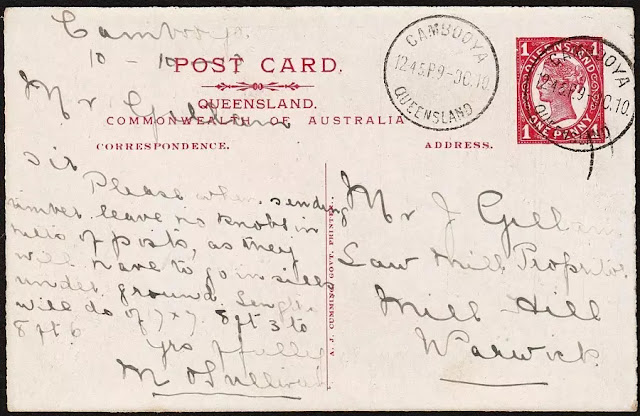 Cambooya
10 - 10 -
POST CARD.
QUEENSLAND.
COMMONWEALTH OF AUSTRALIA
CORRESPONDENCE.
ADDRESS.
CAMBOOYA
12.45P.9-OC.10
QUEENSLAND
QUEENSLAND
1 1
ONE PENNY
1 1
CAMBOOYA
12.45P.9-OC.10
QUEENSLAND
Mr
Sir
Please when sending
timber leave no knobs in
of posts, as they
will have to go in sills
under ground. Length
will do of 7x7 8ft 3 to
8ft 6
Yrs ffully
M OSullivan
A. J. CUMMING GOVT. PRINTER.
Mr J
Saw Mill Proprietor
Mill Hill
Warwick.